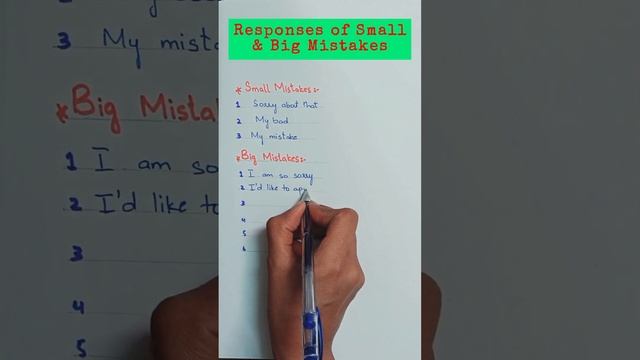 Responses of Small
& Big Mistakes
* Small Mistakes:-
1 Sorry abot that
2 My bad
3 My mistake
* Big Mistakes:-
1 I am so sorry
2 I'd like to apo
3
4
5
6
3 My mista
* Big Mista
1 I am
2 I'd like to
3
4
5